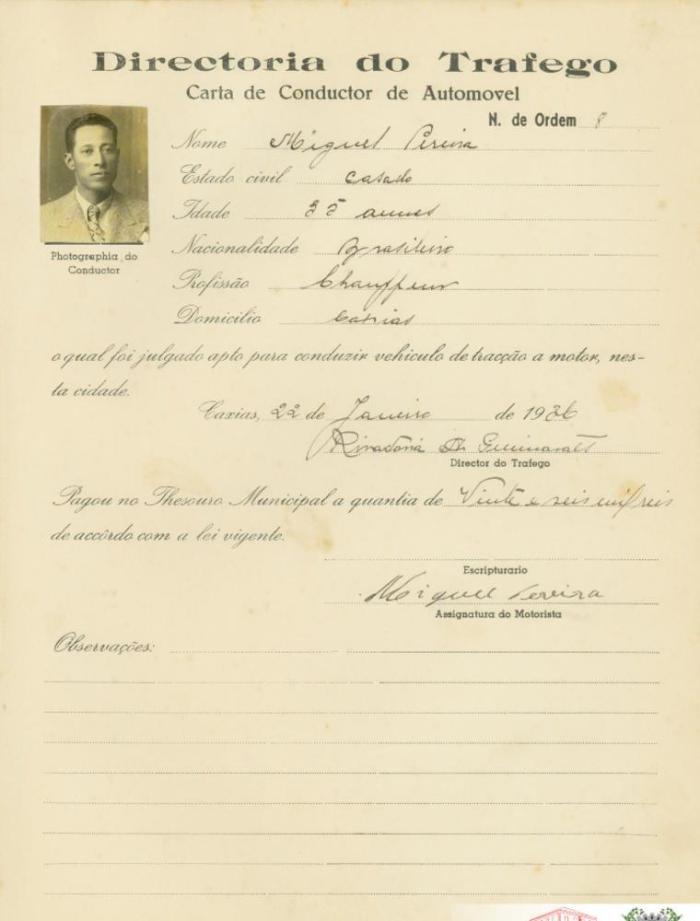 Directoria do Trafego
Carta de Conductor de Automovel
N. de Ordem 8
Nome Miguel Pereira
Estado civil casado
Idade 35 annos
Photographia do
Conductor
Nacionalidade Brasileiro
Profissão Chauffeur
Domicilio Caxias
o qual foi julgado apto para conduzir vehiculo de tracção a motor, nes-
ta cidade.
Caxias, 22 de Janeiro de 1936
Guimarães
Director do Trafego
Pagou no Thesouro Municipal a quantia de Vinte e seis mil reis
de accôrdo com a lei vigente.
Escripturario
Miguel Pereira
Assignatura do Motorista
Observações: